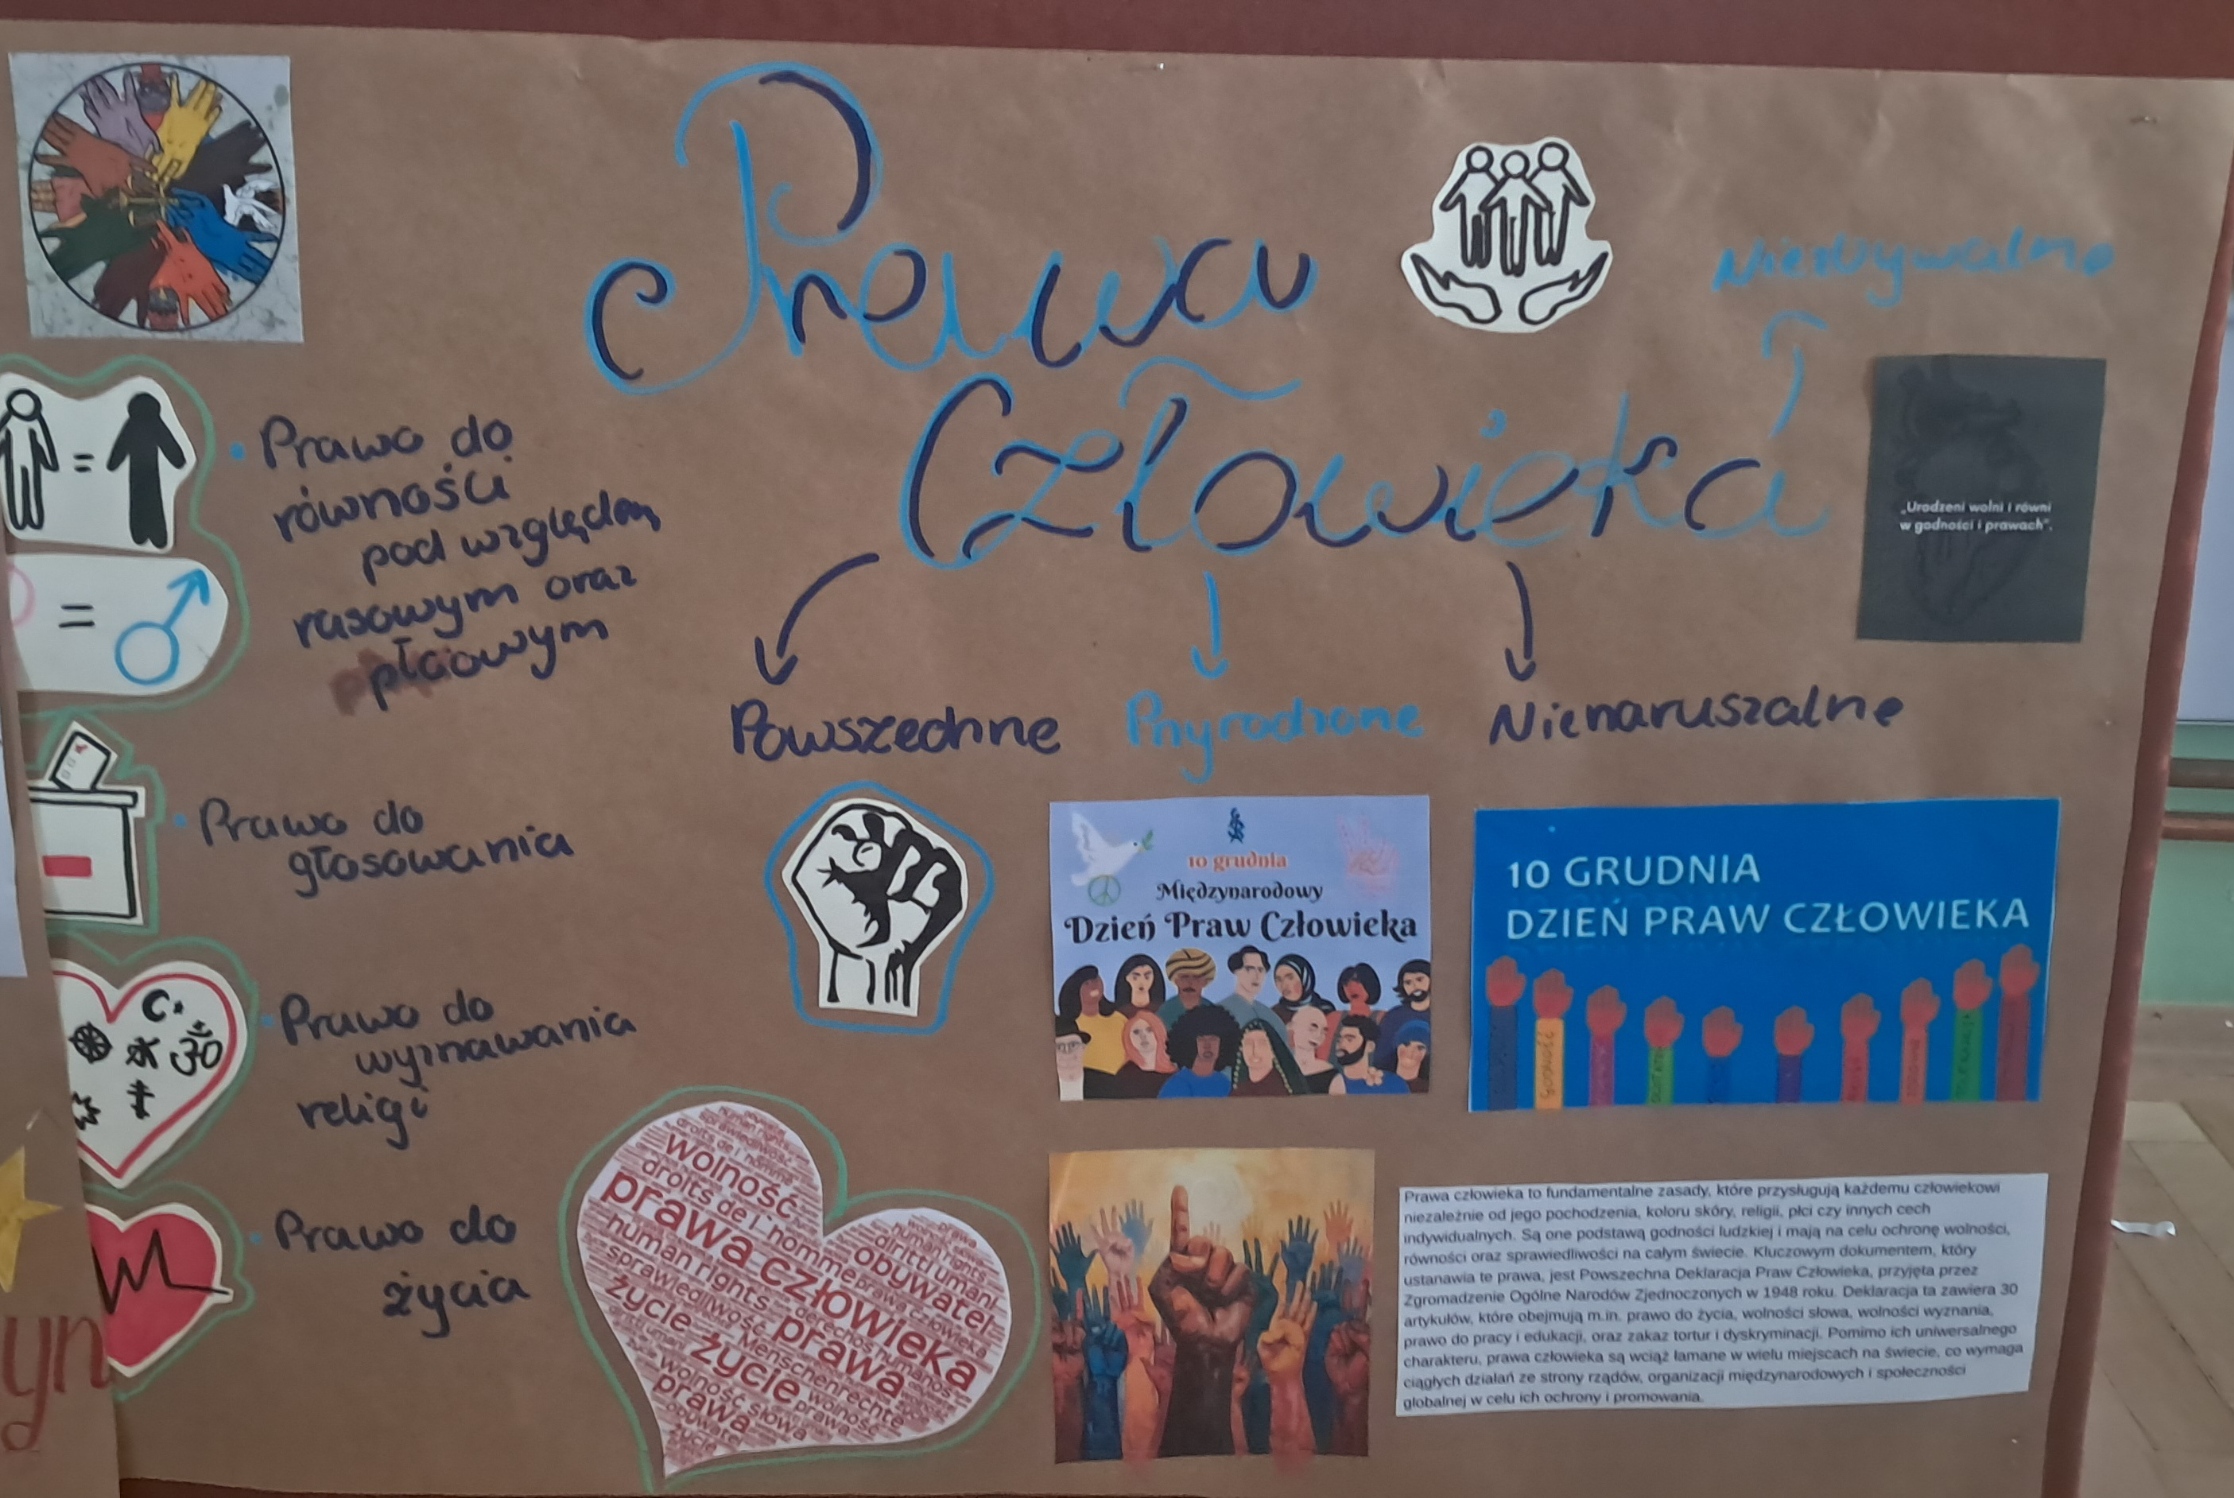 Prawa
Człowieka
Niezbywalne
„Urodzeni wolni i równi
w godności i prawach".
Powszechne
Przyrodzone
Nienaruszalne
• Prawo do
równości
pod względem
rasowym oraz
płciowym
• Prawo do
głosowania
• Prawo do
wyznawania
religi
• Prawo do
życia
10 grudnia
Międzynarodowy
Dzień Praw Człowieka
10 GRUDNIA
DZIEŃ PRAW CZŁOWIEKA
wolność
droits de l'homme
prawa człowieka
human rights
sprawiedliwość
życie życie
prawa
obywatel
diritti umani
human rights
prawa człowieka
derechos humanos
Menschenrechte
wolność słowa
wolność
prawa
prawa
życie
Prawa człowieka to fundamentalne zasady, które przysługują każdemu człowiekowi
niezależnie od jego pochodzenia, koloru skóry, religii, płci czy innych cech
indywidualnych. Są one podstawą godności ludzkiej i mają na celu ochronę wolności,
równości oraz sprawiedliwości na całym świecie. Kluczowym dokumentem, który
ustanawia te prawa, jest Powszechna Deklaracja Praw Człowieka, przyjęta przez
Zgromadzenie Ogólne Narodów Zjednoczonych w 1948 roku. Deklaracja ta zawiera 30
artykułów, które obejmują m.in. prawo do życia, wolności słowa, wolności wyznania,
prawo do pracy i edukacji, oraz zakaz tortur i dyskryminacji. Pomimo ich uniwersalnego
charakteru, prawa człowieka są wciąż łamane w wielu miejscach na świecie, co wymaga
ciągłych działań ze strony rządów, organizacji międzynarodowych i społeczności
globalnej w celu ich ochrony i promowania.
yn